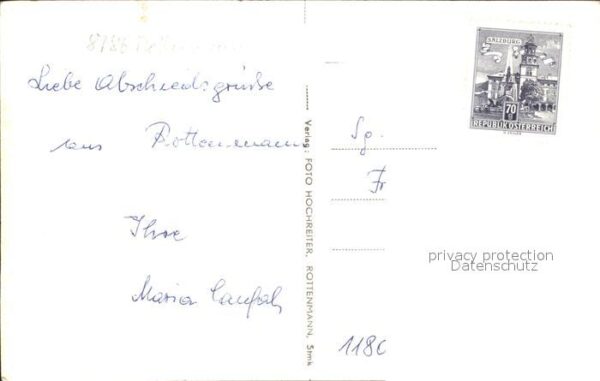 8786
Liebe Abschiedsgrüße
aus Rottenmann
Ihre
Maria
Verlag: FOTO HOCHREITER, ROTTENMANN, Stmk
Sg.
Fr
1180
SALZBURG
70
REPUBLIK ÖSTERREICH
privacy protection
Datenschutz